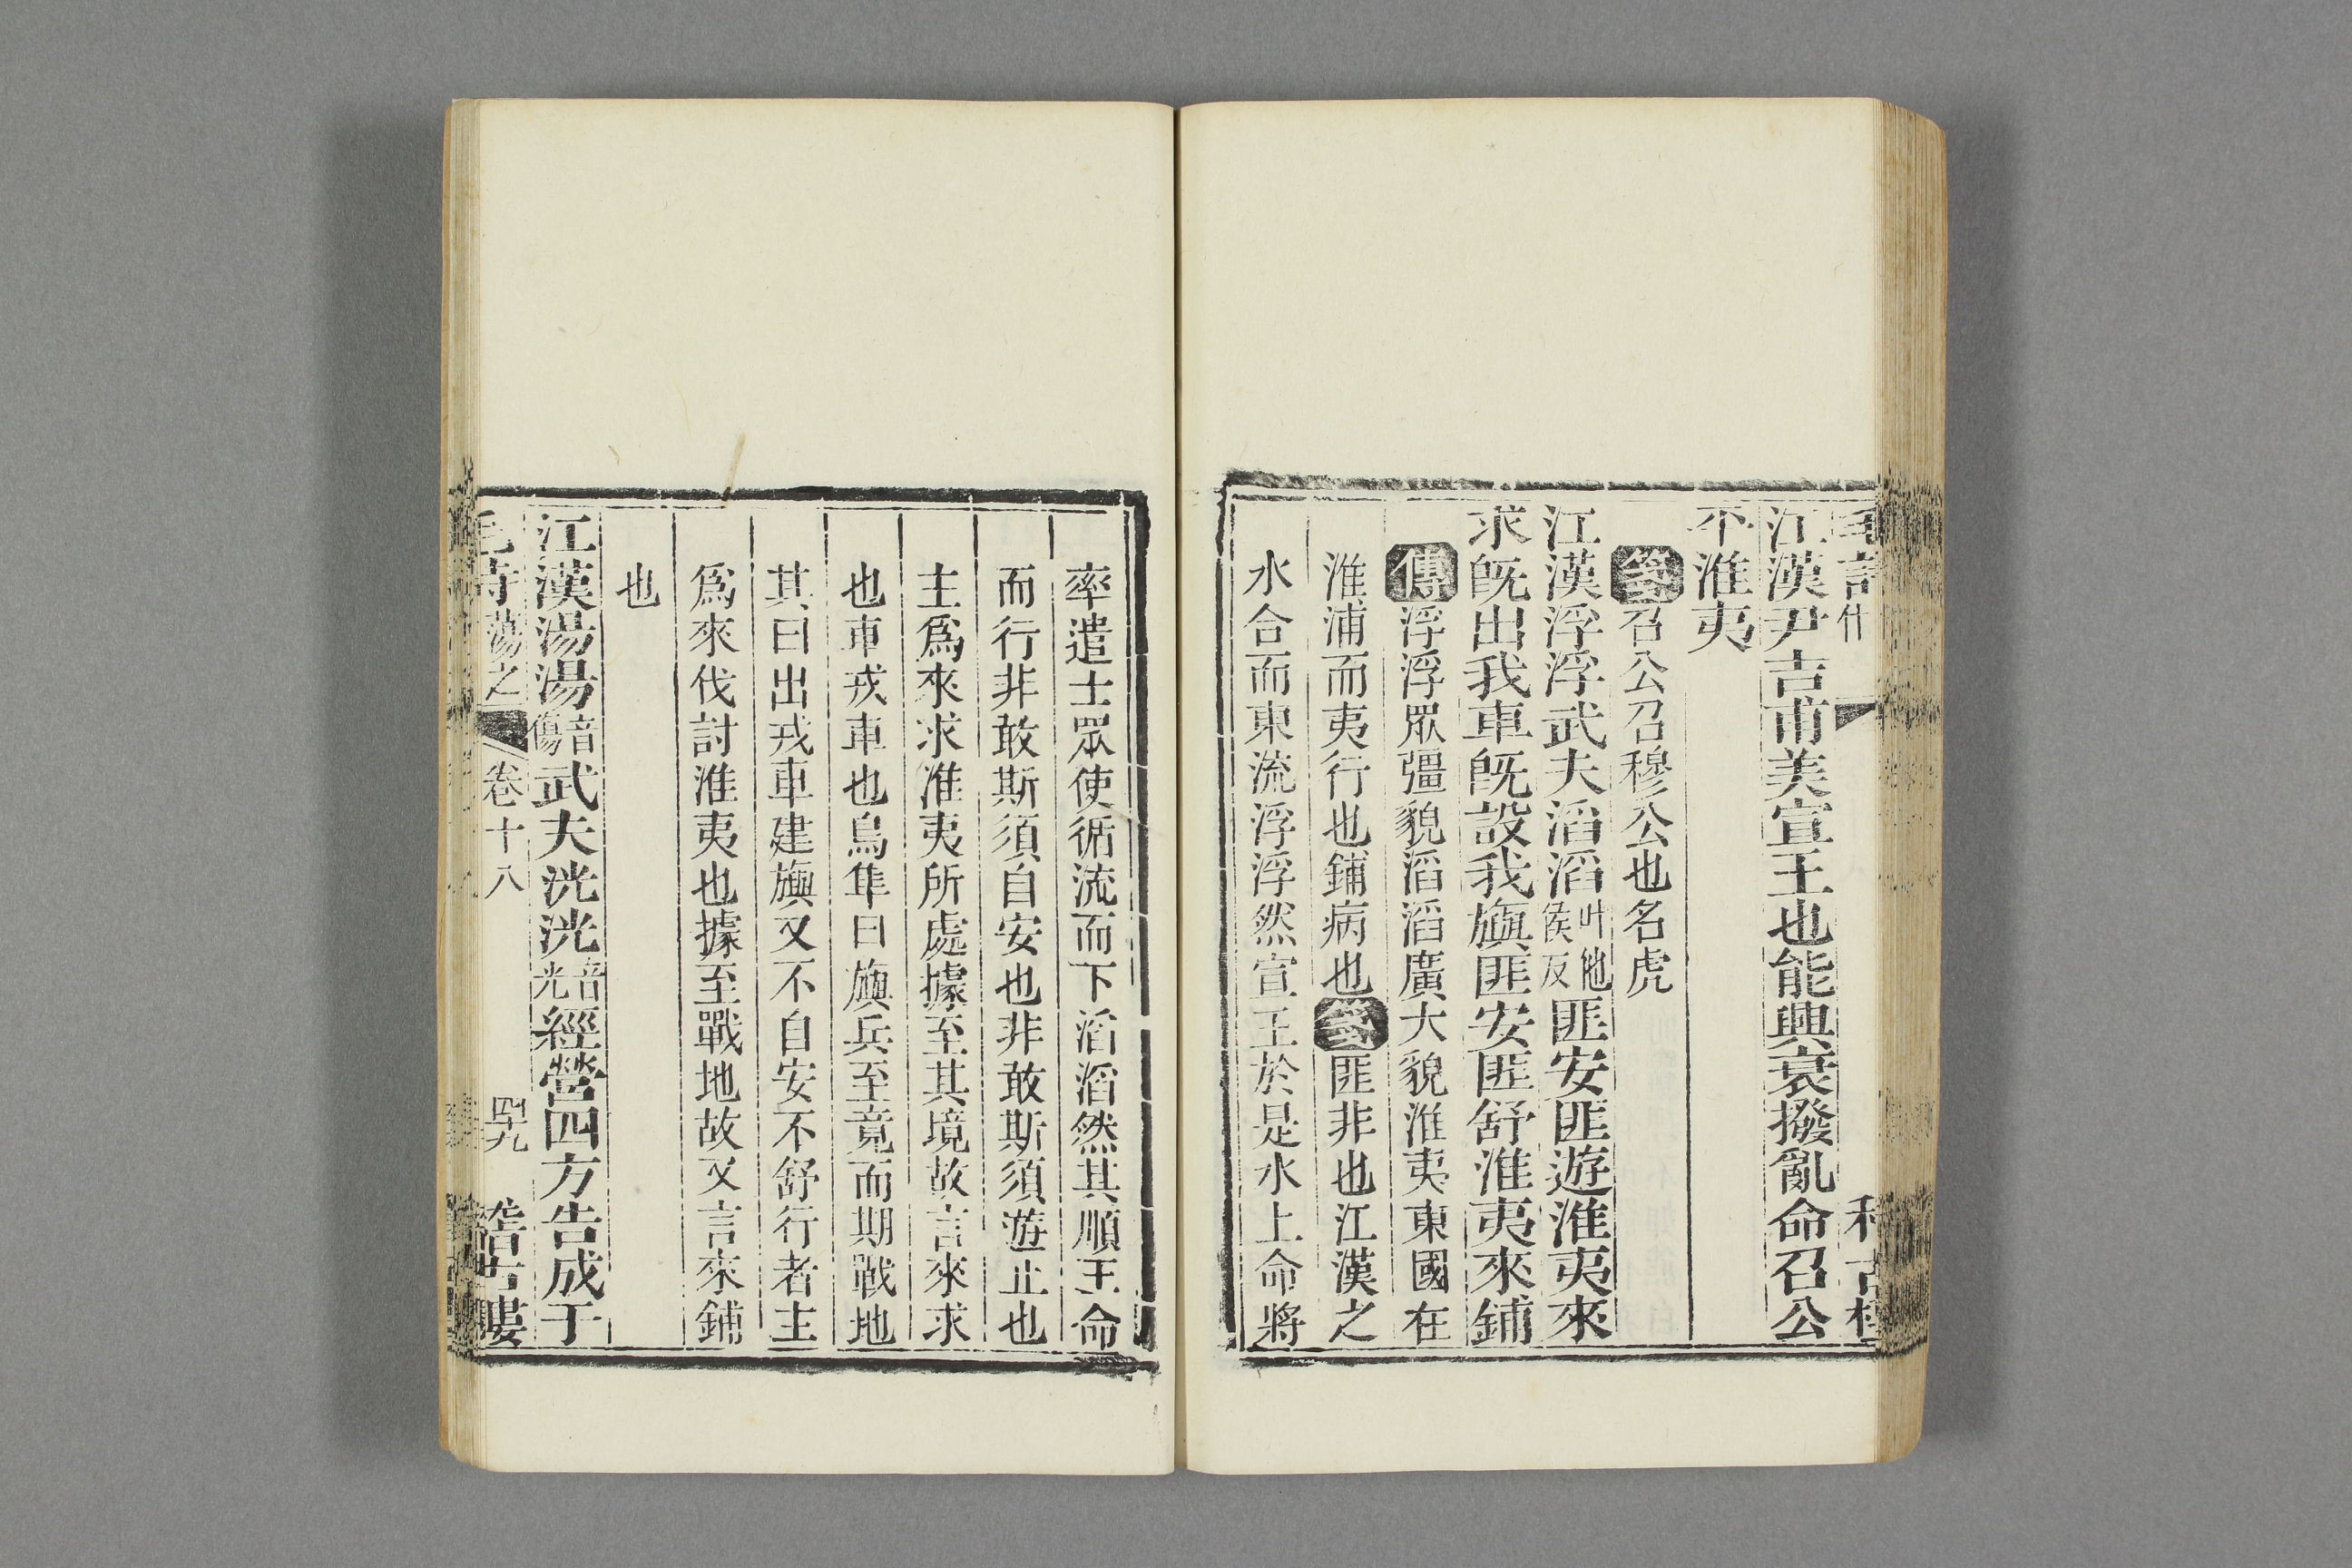 江漢尹吉甫美宣王也能興衰撥亂命召公
不淮夷
箋召公召穆公也名虎
江漢浮浮武夫滔滔叶他侯反匪安匪遊淮夷來
求既出我車既設我旟匪安匪舒淮夷來鋪
傳浮浮眾彊貌滔滔廣大貌淮夷東國在
淮浦而夷行也鋪病也箋匪非也江漢之
水合而東流浮浮然宣王於是水上命將
率遣士眾使循流而下滔滔然其順王命
而行非敢斯須自安也非敢斯須遊止也
主為來求淮夷所處據至其境故言來求
也車戎車也鳥隼曰旟兵至竟而期戰地
其曰出戎車建旟又不自安不舒行者主
為來伐討淮夷也據至戰地故又言來鋪
也
江漢湯湯音傷武夫洸洸音光經營四方告成于
毛詩蕩之 卷十八 四十九